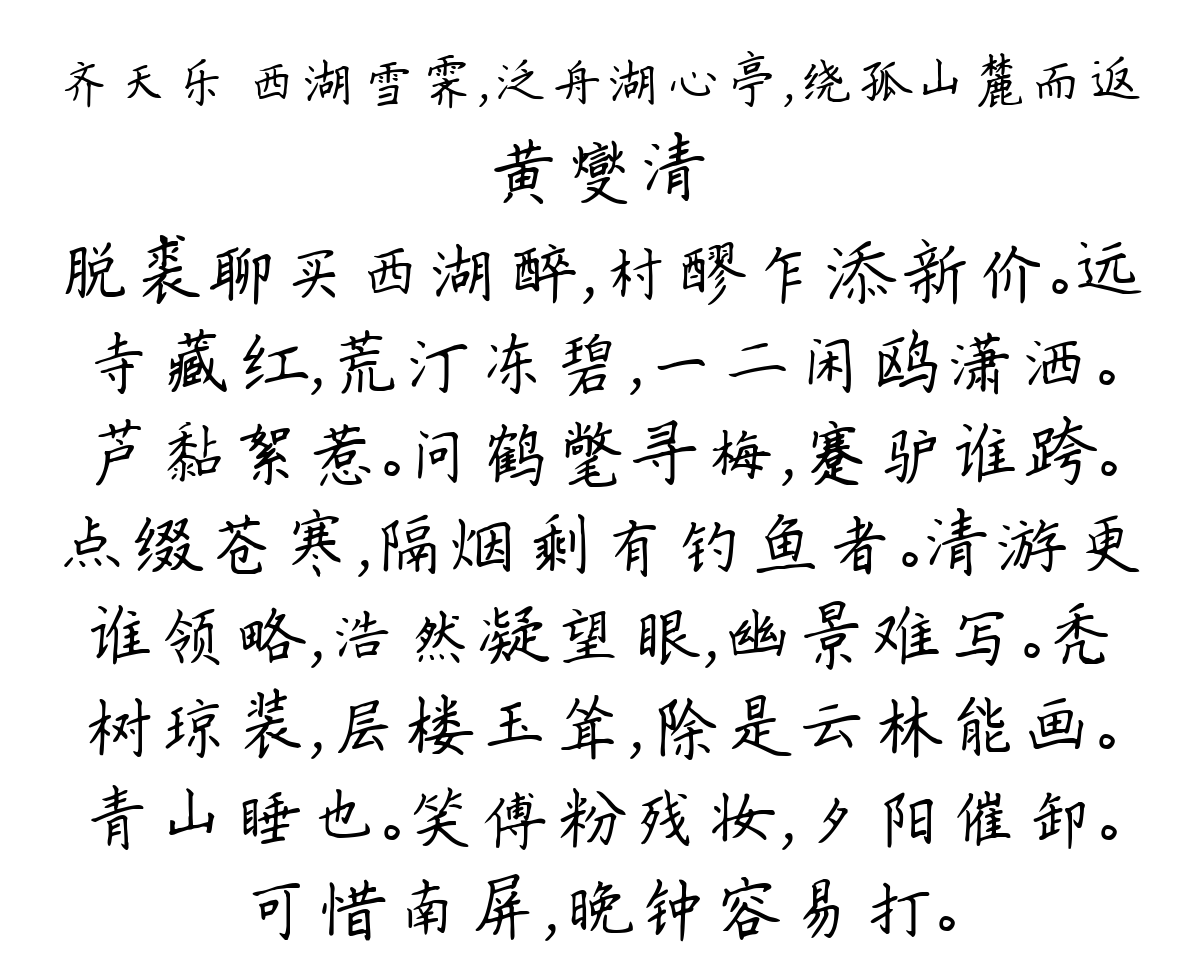 齐天乐 西湖雪霁,泛舟湖心亭,绕孤山麓而返
黄燮清
脱裘聊买西湖醉,村醪乍添新价。远
寺藏红,荒汀冻碧,一二闲鸥潇洒。
芦黏絮惹。问鹤氅寻梅,蹇驴谁跨。
点缀苍寒,隔烟剩有钓鱼者。清游更
谁领略,浩然凝望眼,幽景难写。秃
树琼装,层楼玉耸,除是云林能画。
青山睡也。笑傅粉残妆,夕阳催卸。
可惜南屏,晚钟容易打。